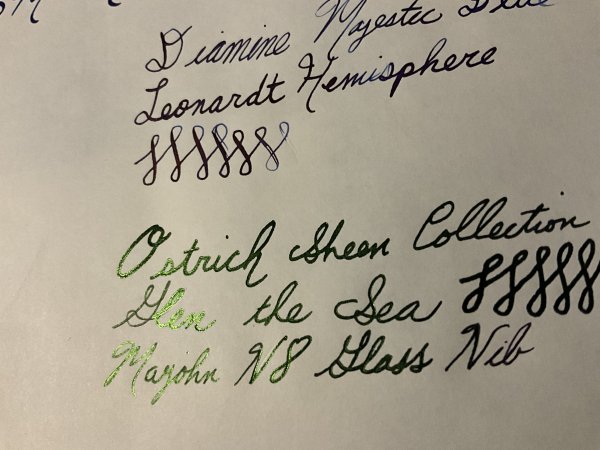 Diamine Majestic Blue
Leonardt Hemisphere
Ostrich Sheen Collection
Glen the Sea
Majohn N8 Glass Nib